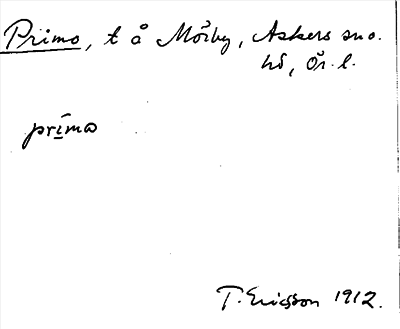 Primo, t å Mörby, Askers sn o.
hd, Ör. l.
prima
T. Ericsson 1912.